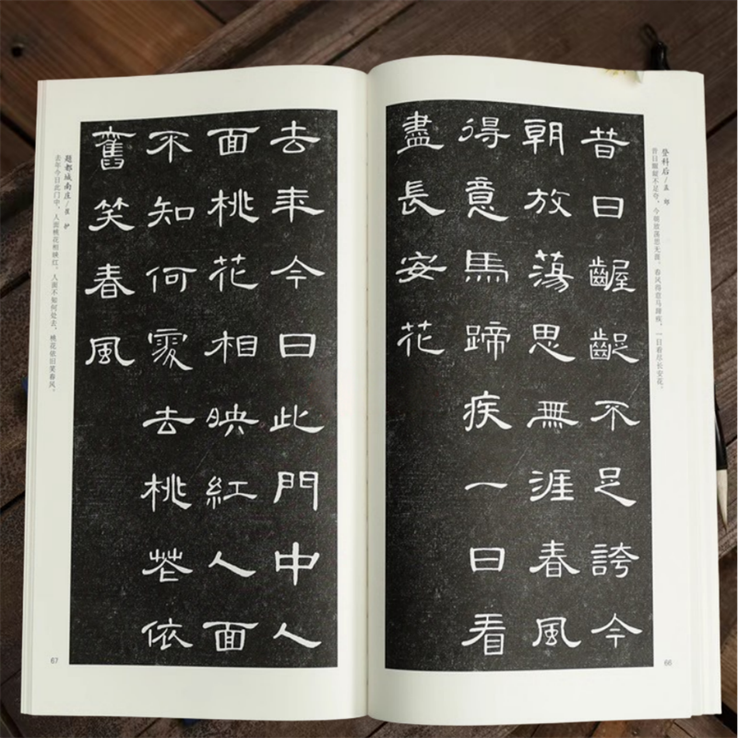 登科后/孟郊
昔日龌龊不足夸，今朝放荡思无涯。春风得意马蹄疾，一日看尽长安花。
昔日齷齪不足誇今
朝放蕩思無涯春風
得意馬蹄疾一日看
盡長安花
66
去年今日此門中人
面桃花相映紅人面
不知何處去桃花依
舊笑春風
题都城南庄/崔护
去年今日此门中，人面桃花相映红。人面不知何处去，桃花依旧笑春风。
67